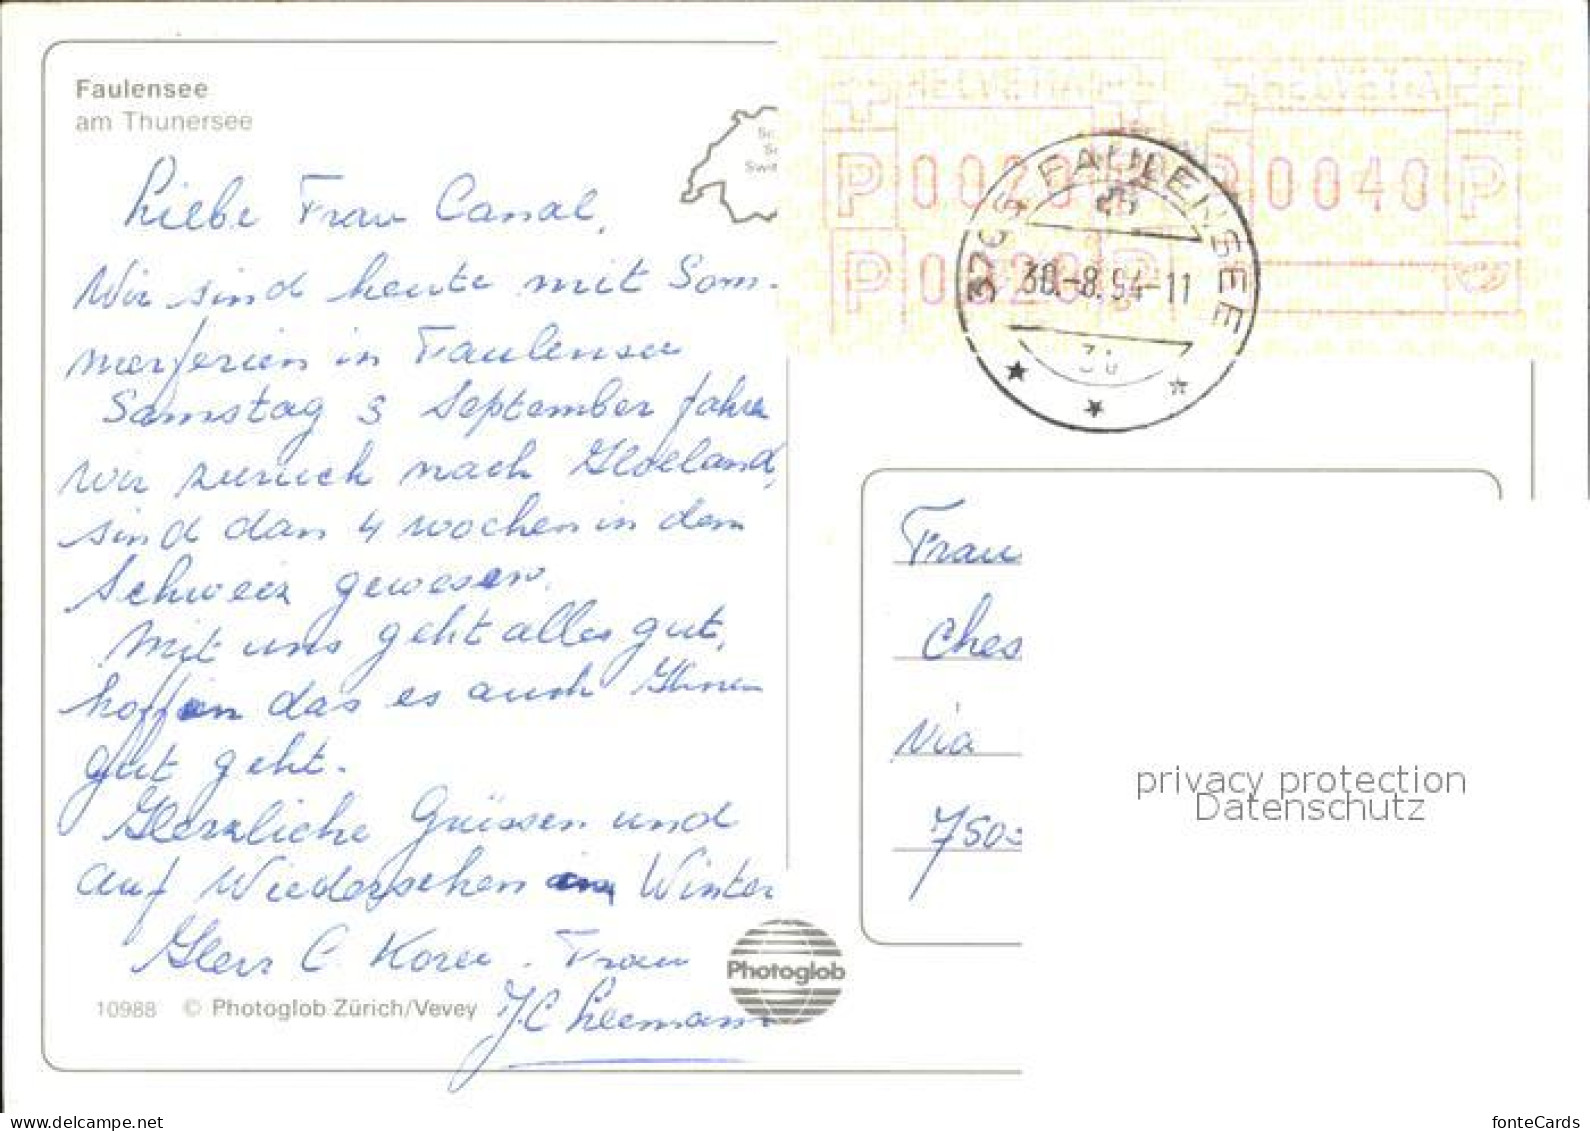 Faulensee
am Thunersee
Liebe Frau Canal,
Wir sind heute mit Som-
merferien in Faulensee
Samstag 3 September fahren
wir zurück nach Holland,
sind dan 4 wochen in dem
Schweiz gewesen.
Mit uns geht alles gut,
hoffen das es auch Ihnen
gut geht.
Herzliche Grüssen und
auf Wiedersehen im Winter
Herr C. . Frau
J.C
10988 © Photoglob Zürich/Vevey
Photoglob
HELVETIA HELVETIA
P 0020 P 0040 P
P 0020 P
3705 FAULENSEE
30.-8.94-11
Frau
Ches
Via
7503
privacy protection
Datenschutz
www.delcampe.net
fonteCards